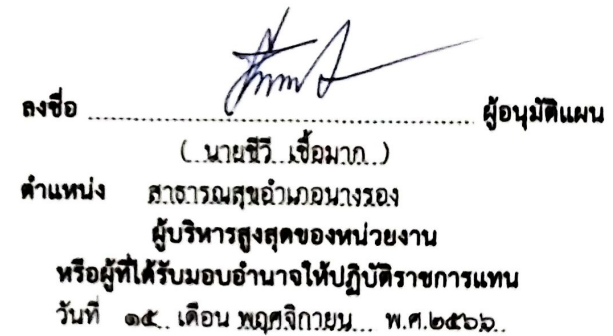 ลงชื่อ ........................................ ผู้อนุมัติแผน
(..นายชีวี...เชื้อมาก..)
ตำแหน่ง สาธารณสุขอำเภอนางรอง
ผู้บริหารสูงสุดของหน่วยงาน
หรือผู้ที่ได้รับมอบอำนาจให้ปฏิบัติราชการแทน
วันที่ ๑๕.. เดือน พฤศจิกายน... พ.ศ.๒๕๖๖..